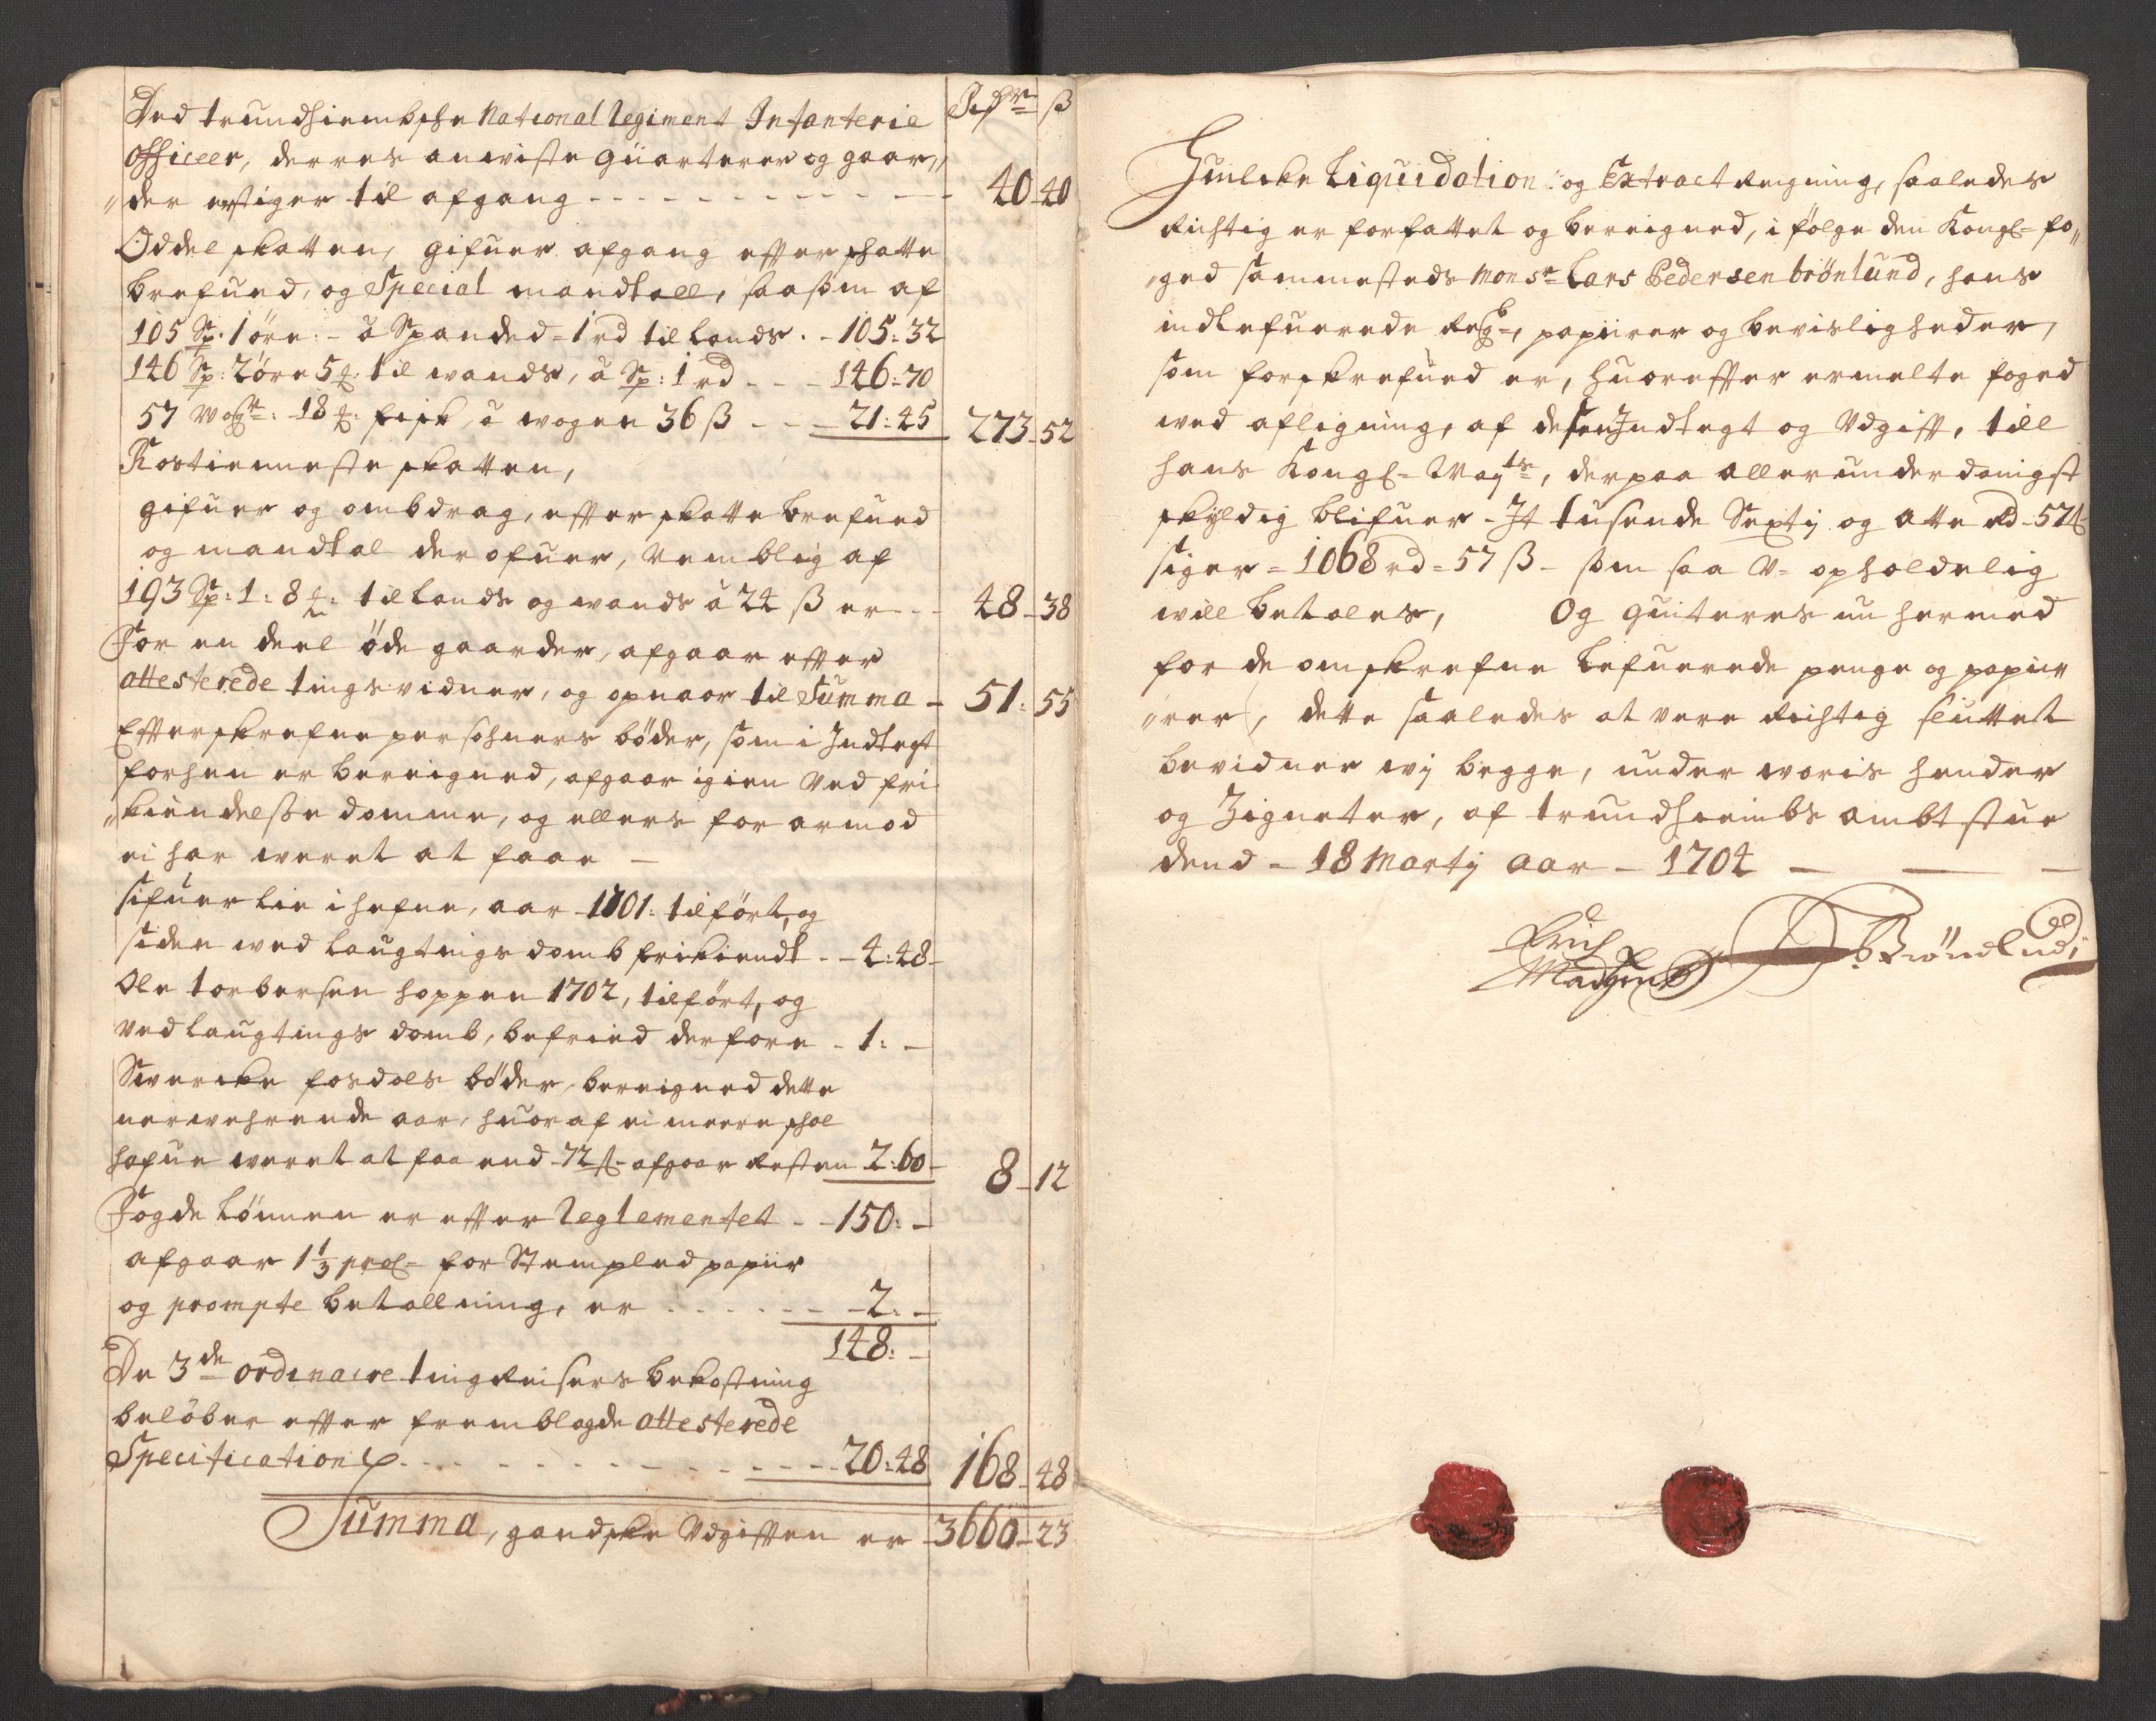 Rixdr ß
Ded trundhiembsche National Regiment Infanterie
officeer, derres anviste Quarterer og gaar„
„der erstiger til afgang - - - 40 - 40
Oddel skatten, gifuer afgang effter schatte
brefued, og Special mandtall, saasom af
105 Sp: 1 öre: - â Spanded = 1 rd til lands. - 105 = 32
146 Sp: 2 öre 5 ₰: til wands, â Sp: 1 rd - - - 146 = 70
57 Wog: 18 ₰: fisk, â wogen 36 ß - - - 21: 45 273 - 52
Rostienneste skatten,
gifuer og ombdrag, effter skatte brefued
og mandtal derofuer, Nemblig af
193 Sp: 1: 8 ₰: til lands og wands â 24 ß er - - 48 - 38
For en deel öde gaarder, afgaar effter
attesterede tingsvidner, og opnaar til Summa - 51: 55
Effterskrefne persohners böder, som i Indtegt
forhen er bereigned, afgaar igien Ved fri
„kiendelsse domme, og ellers for armod
ei har weret at faae -
Sifuer Lie i hefne, aar 1701: tilfört, og
siden wed laugtings domb frikiendt - - 4: 48 -
Ole torbersen hoppen 1702, tilfört, og
Ved laugtings domb, befried derfore - 1: -
Siverske fosdals böder bereigned dette
nerwehrende aar, huoraf ei meere schal
hafue weret at faa end - 72 ß - afgaar Resten 2: 60 - 8 - 12
Fogde Lönnen er effter Reglementet - - 150: -
afgaar 1 1/3 procl= for Stempled papiir
og prompte betallning, er - - - - 2: -
148: -
De 3de ordinaire ting Reisers bekostning
belöber effter fremblagde attesterede
Specification - - - - 20: 48 168 - 48
Summa, gandske Udgifften er - 3660 - 23
Huilcke Liquidation: og Extract Reigning, saaledes
Richtig er forfattet og bereigned, i fölge den Kongl= fo„
„ged sammesteds Monsr Lars Pedersen brönlund, hans
indlefuerede Regb=, papiirer og bevisligheder,
som forskrefued er, huoreffter ermelte foged
wed afligning, af desen Indtegt og Udgifft, till
hans Kongl= Mayts, derpaa allerunderdanigst
skyldig blifuer - It tusende Sexty og otte rd - 57 ß
siger = 1068 rd = 57 ß - som saa U= opholdelig
will betales, Og quiteres nu hermed
for de omskrefne lefuerede penge og papii„
„rer, dette saaledes at vere Richtig sluttet
bevidner wij begge, under woris hender
og Zigneter, af trundhiembs ambtstue
dend - 18 Marty aar - 1704 - - -
Erich
Madsen
LPBrönlund